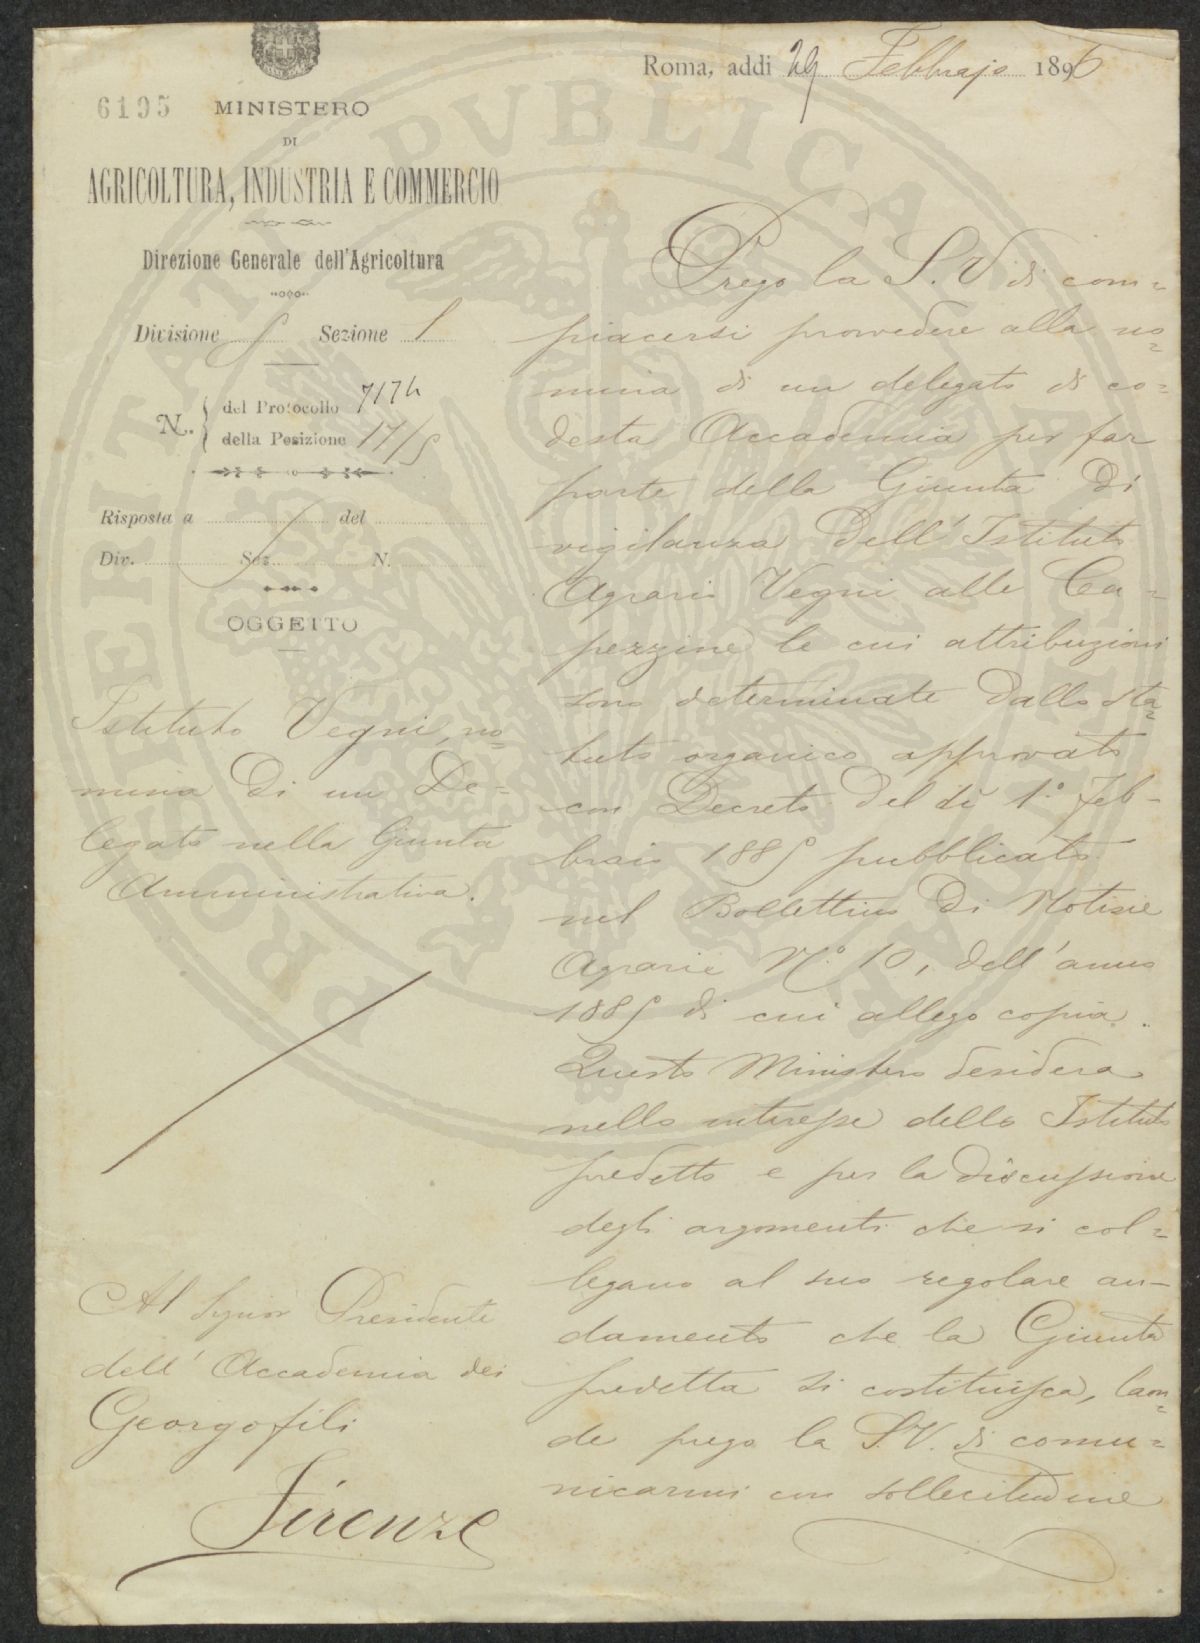 Roma, addì 29 Febbrajo 1896
6195 MINISTERO
DI
AGRICOLTURA, INDUSTRIA E COMMERCIO
Direzione Generale dell'Agricoltura
Divisione 5 Sezione 1
N. del Protocollo 7174
della Posizione 17/5
Risposta a del
Div. Sez. N.
OGGETTO
Istituto Vegni, no=
mina di un De=
legato nella Giunta
Amministrativa.
Al Signor Presidente
dell'Accademia dei
Georgofili
Firenze
Prego la S. V. di com=
piacersi provvedere alla no=
mina di un delegato di co=
desta Accademia per far
parte della Giunta di
vigilanza dell'Istituto
Agrario Vegni alle Ca=
pezzine le cui attribuzioni
sono determinate dallo sta=
tuto organico approvato
con Decreto del dì 1º Feb-
braio 1885 pubblicato
nel Bollettino di Notizie
Agrarie N.º 10, dell'anno
1885 di cui allego copia.
Questo Ministero desidera
nello interesse dello Istituto
predetto e per la discussione
degli argomenti che si col=
legano al suo regolare an-
damento che la Giunta
predetta si costituisca, laon=
de prego la S.V. di comu=
nicarmi con sollecitudine
PROSPERITATI PVBLICAE AVGENDAE